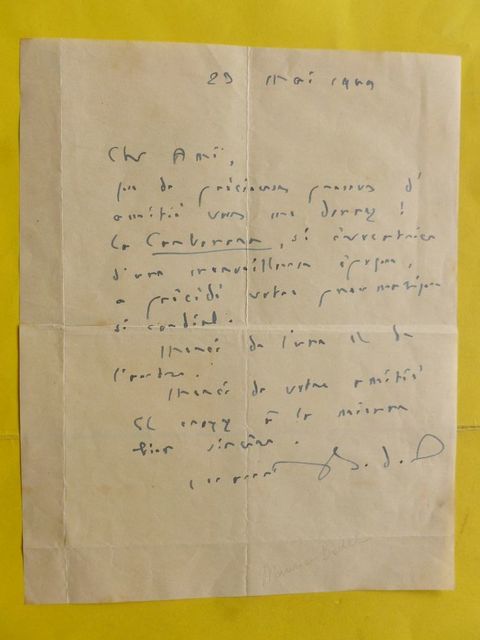 29 Mai 1949
Cher Ami,
que de précieuses preuves d'
amitié vous me donnez !
Le Cameraman, si évocateur
d'une merveilleuse époque,
a précédé votre pneumatique
si cordial.
Merci de l'une et de
l'autre.
Merci de votre amitié
Et croyez à la mienne
bien sincère.